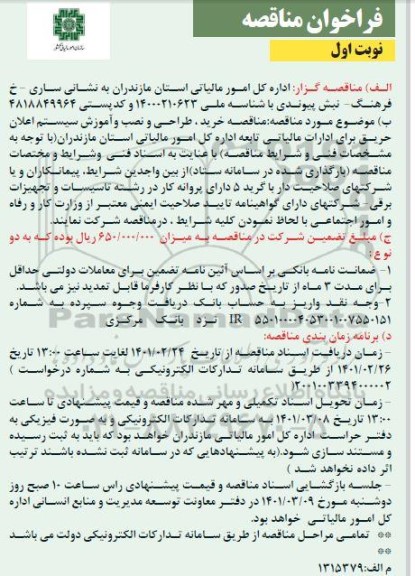 فراخوان مناقصه
نوبت اول
الف) مناقصه گزار: اداره کل امور مالیاتی استان مازندران به نشانی ساری - خ
فرهنگ- نبش پیوندی با شناسه ملی ۱۴۰۰۰۲۱۰۶۲۳ و کدپستی ۴۸۱۸۸۴۹۹۶۴
ب) موضوع مورد مناقصه:مناقصه خرید ، طراحی و نصب و آموزش سیستم اعلان
حریق برای ادارات مالیاتی تابعه اداره کل امور مالیاتی استان مازندران(با توجه به
مشخصات فنی و شرایط مناقصه) با عنایت به اسناد فنی وشرایط و مختصات
مناقصه (بارگذاری شده در سامانه ستاد)از بین واجدین شرایط، پیمانکاران و یا
شرکتهای صلاحیت دار با گرید ۵ دارای پروانه کار در رشته تاسیسات و تجهیزات
برقی و شرکتهای دارای گواهینامه تایید صلاحیت ایمنی معتبر از وزارت کار و رفاه
و امور اجتماعی با لحاظ نمودن کلیه شرایط ، در مناقصه شرکت نمایند.
ج) مبلغ تضمین شرکت در مناقصه به میزان ۶۵۰/۰۰۰/۰۰۰ ریال بوده که به دو
نوع :
۱- ضمانت نامه بانکی بر اساس آئین نامه تضمین برای معاملات دولتی حداقل
برای مدت ۳ ماه از تاریخ صدور که با نظر کارفرما قابل تمدید نیز می باشد.
۲-وجه نقد واریز به حساب بانک دریافت وجوه سپرده به شماره
IR ۵۵۰۱۰۰۰۰۴۰۵۳۰۰۱۰۰۷۵۵۰۱۵۱ نزد بانک مرکزی
د) برنامه زمان بندی مناقصه:
- زمان دریافت اسناد مناقصه از تاریخ ۱۴۰۱/۰۲/۲۴ لغایت ساعت ۱۳:۰۰ تاریخ
۱۴۰۱/۰۲/۲۶ از طریق سامانه تدارکات الکترونیکی به شماره درخواست (
۱۲۰۰۱۰۰۳۳۹۴۰۰۰۰۲)
- زمان تحویل اسناد تکمیلی و مهر شده مناقصه و قیمت پیشنهادی تا ساعت
۱۳:۰۰ تاریخ ۱۴۰۱/۰۳/۰۸ به سامانه تدارکات الکترونیکی و به صورت فیزیکی به
دفتر حراست اداره کل امور مالیاتی مازندران خواهد بود که باید به ثبت رسیده
و مستند سازی شود.(به پیشنهادهایی که در سامانه ثبت نشده باشند ترتیب
اثر داده نخواهد شد )
- جلسه بازگشایی اسناد مناقصه و قیمت پیشنهادی راس ساعت ۱۰ صبح روز
دوشنبه مورخ ۱۴۰۱/۰۳/۰۹ در دفتر معاونت توسعه مدیریت و منابع انسانی اداره
کل امور مالیاتی خواهد بود.
** تمامی مراحل مناقصه از طریق سامانه تدارکات الکترونیکی دولت می باشد
**
م الف:۱۳۱۵۳۷۹